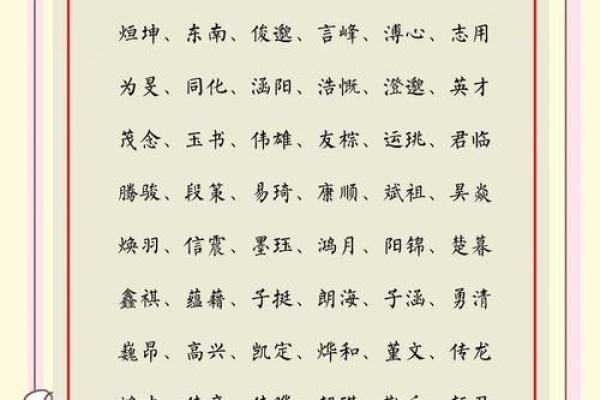 烜坤、东南、俊邈、言峰、溥心、志用
为旻、同化、涵阳、浩慨、澄邈、英才
茂念、玉书、伟雄、友棕、运珧、君临
腾骏、段策、易琦、康顺、斌祖、昊焱
焕羽、信震、墨珏、鸿月、阳锦、楚暮
鑫祺、蕴藉、子挺、朗海、子涵、勇清
巍昂、高兴、凯定、烨和、董文、传龙